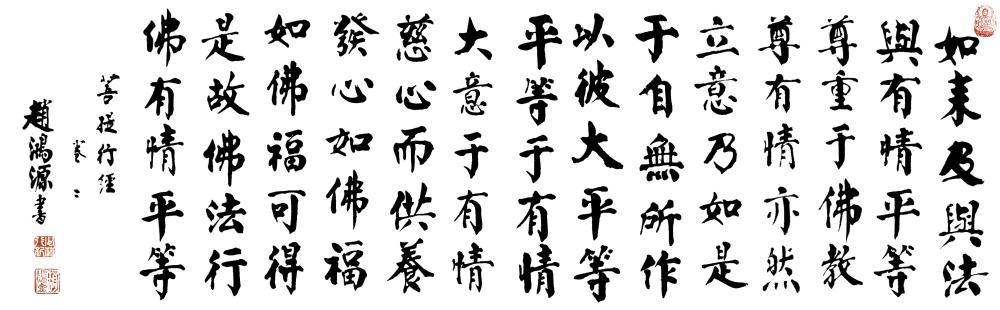 如来及與法
與有情平等
尊重于佛教
尊有情亦然
立意乃如是
于自無所作
以彼大平等
平等于有情
大意于有情
慈心而供養
發心如佛福
如佛福可得
是故佛法行
佛有情平等
菩提行經
卷二
趙鴻源書